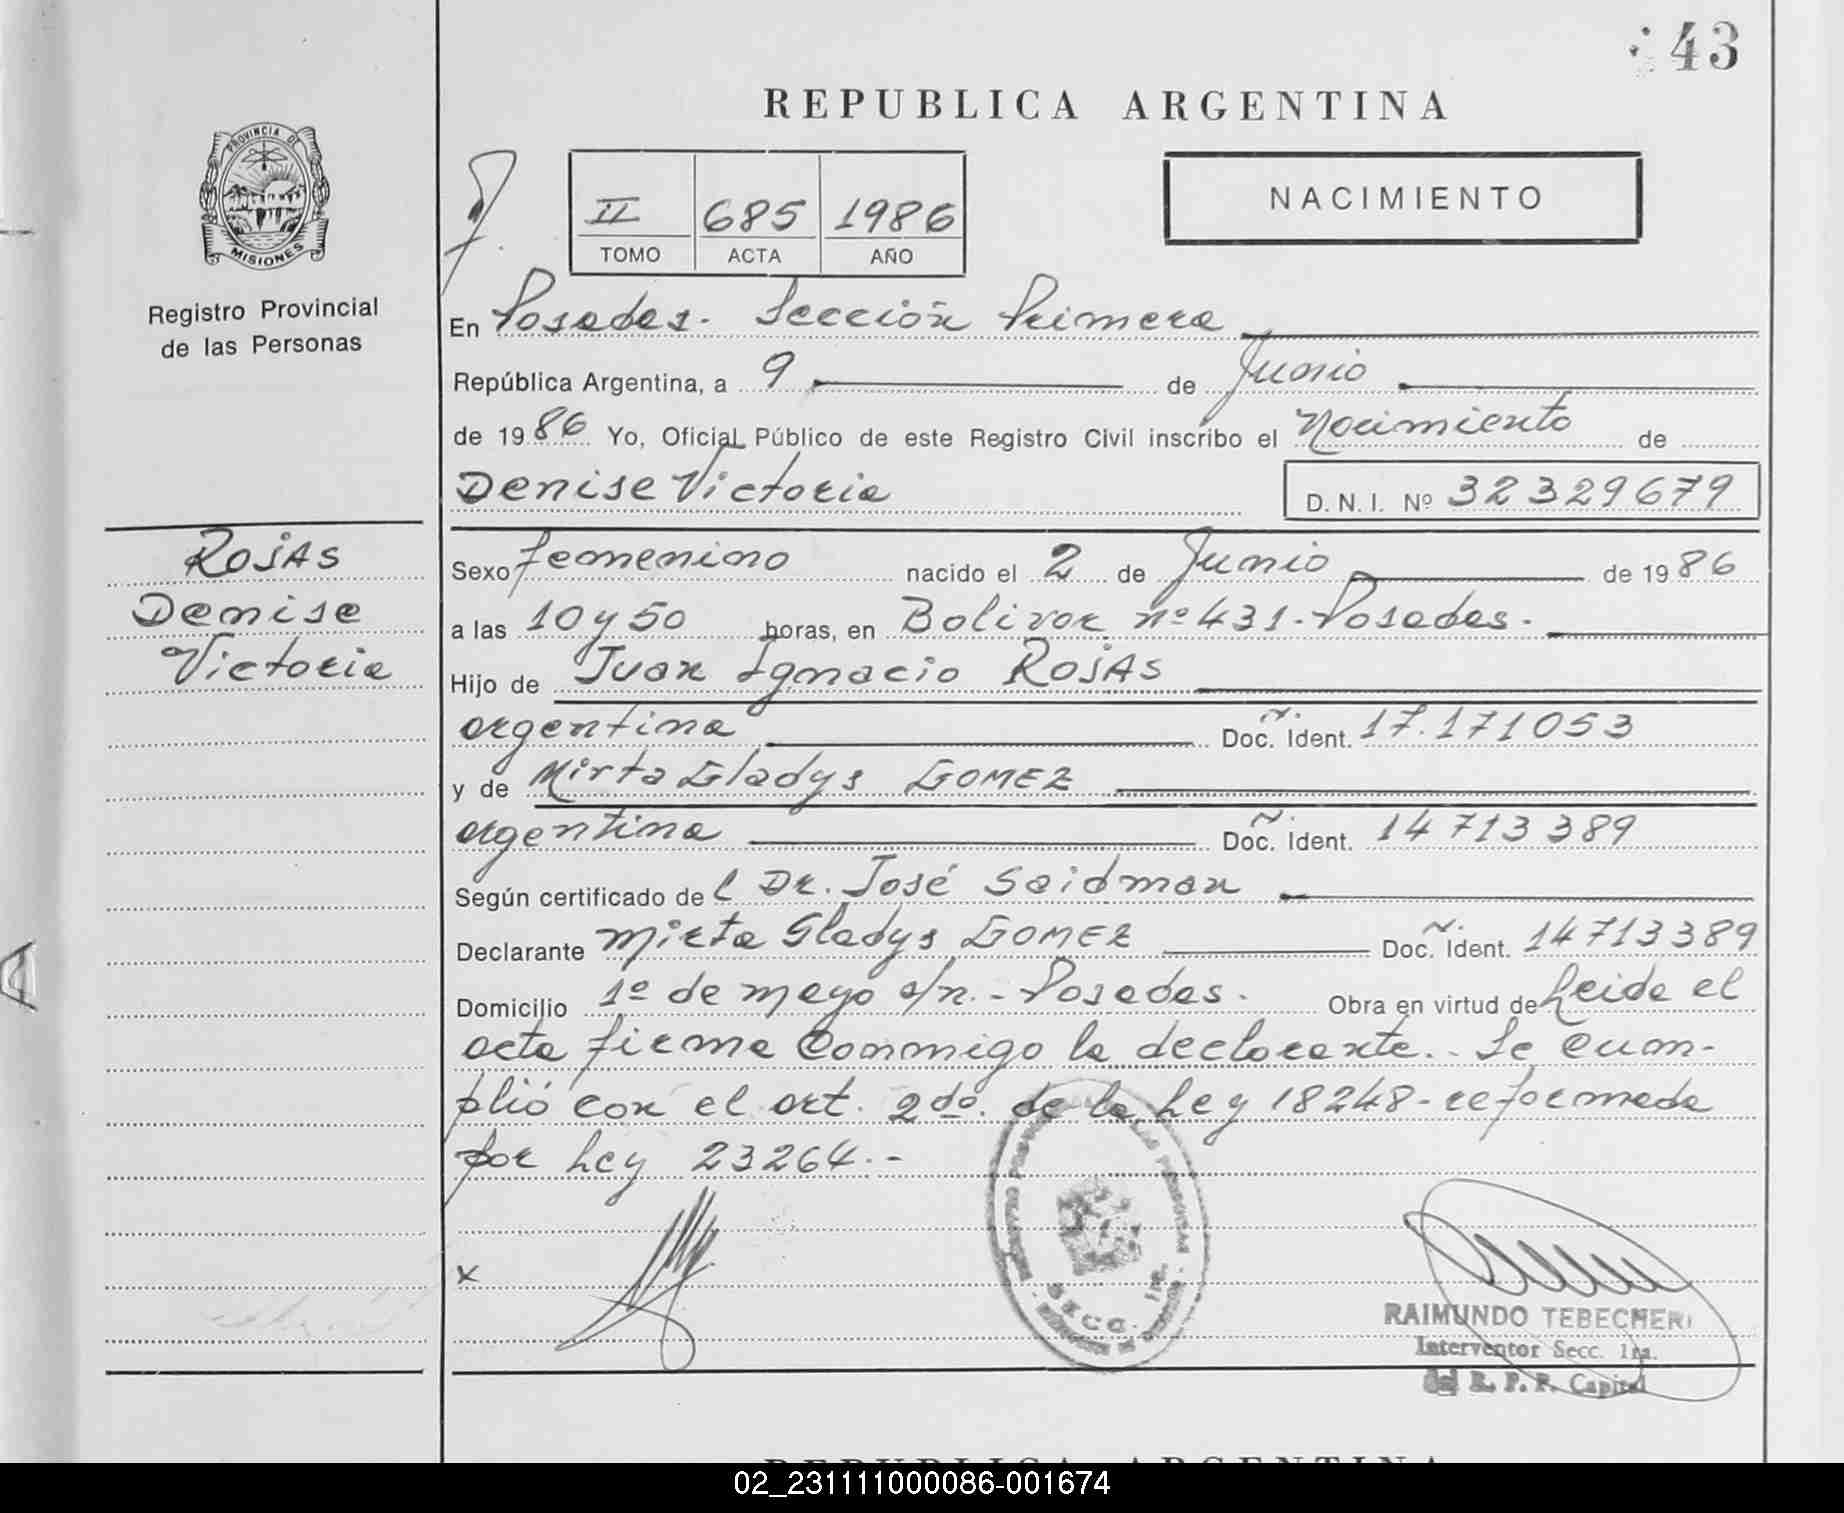 43
REPUBLICA ARGENTINA
PROVINCIA DE
MISIONES
Registro Provincial
de las Personas
II 685 1986
TOMO ACTA AÑO
NACIMIENTO
En Posadas. Sección Primera
República Argentina, a 9 de Junio
de 1986 Yo, Oficial Público de este Registro Civil inscribo el Nacimiento de
Denise Victoria D. N. I. Nº 32329679
ROJAS
Denise
Victoria
Sexo femenino nacido el 2 de Junio de 1986
a las 10 y 50 horas, en Bolivar nº 431. Posadas.
Hijo de Juan Ignacio ROJAS
argentina Doc. Ident. 17.171053
y de Mirta Gladys GOMEZ
argentina Doc. Ident. 14 713 389
Según certificado del Dr. José Saidman
Declarante Mirta Gladys GOMEZ Doc. Ident. 14713389
Domicilio 1º de mayo s/n. - Posadas. Obra en virtud de Leida el
acta firma conmmigo la declarante.. Se cum-
plió con el art. 2do. de la Ley 18248-reformada
por Ley 23264.-
x
SECC. 1ra.
RAIMUNDO TEBECHERI
Interventor Secc. 1ra.
del R. P. P. Capital
REPUBLICA ARGENTINA
02_231111000086-001674